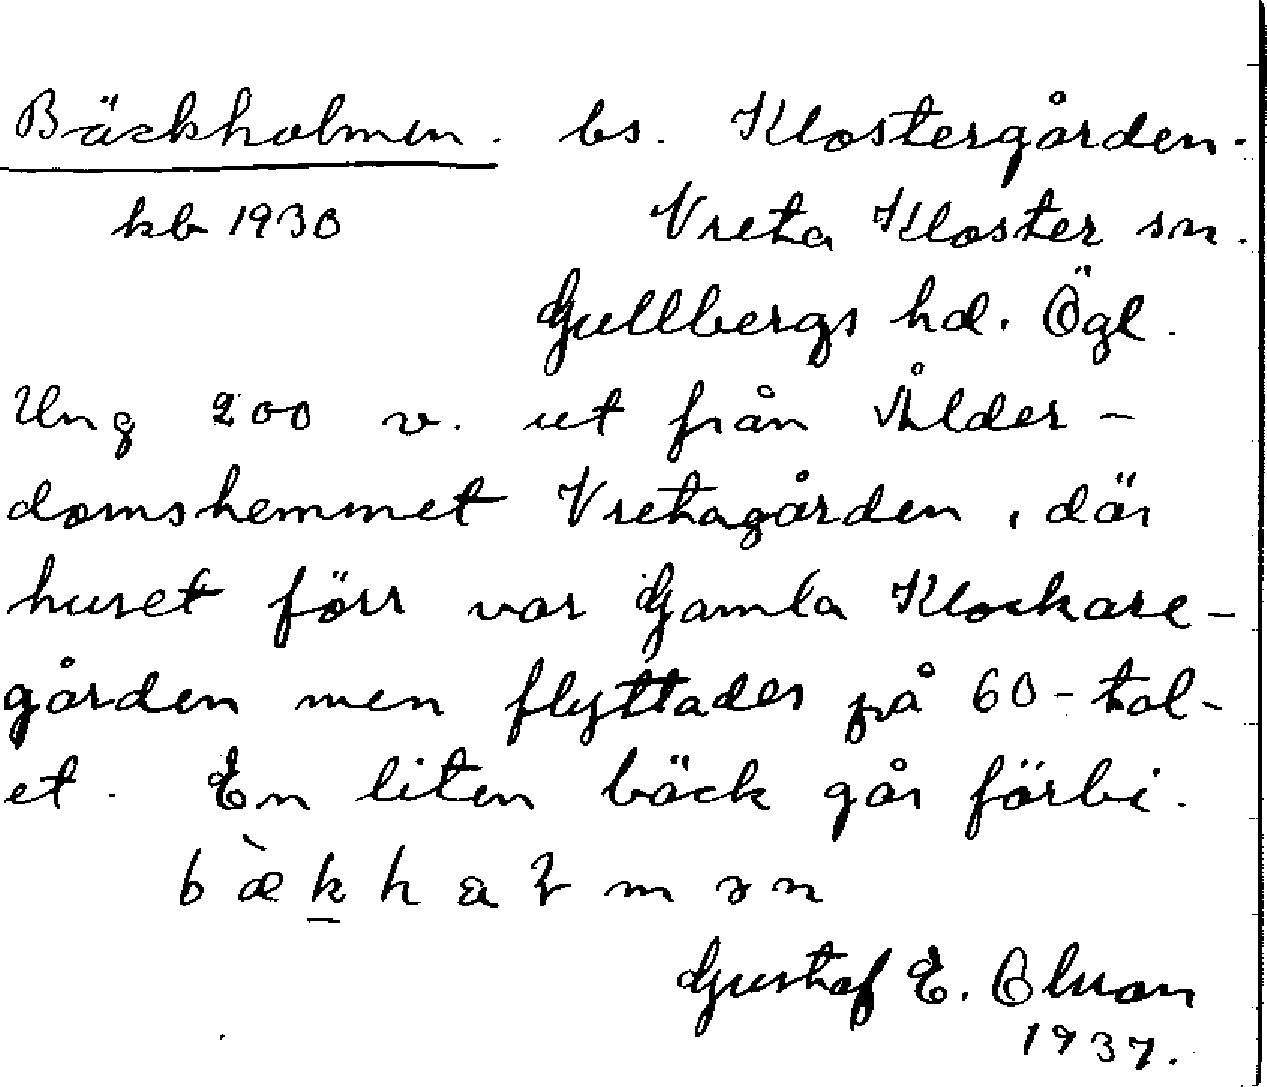 Bäckholmen. bs. Klostergården.
kb 1930 Vreta Kloster sn.
Gullbergs hd. Ögl.
Ung 200 v. ut från Ålder-
domshemmet Vretagården, där
huset förr var Gamla Klockare-
gården men flyttades på 60-tal-
et. En liten bäck går förbi.
Gustaf E. Olson
1937.